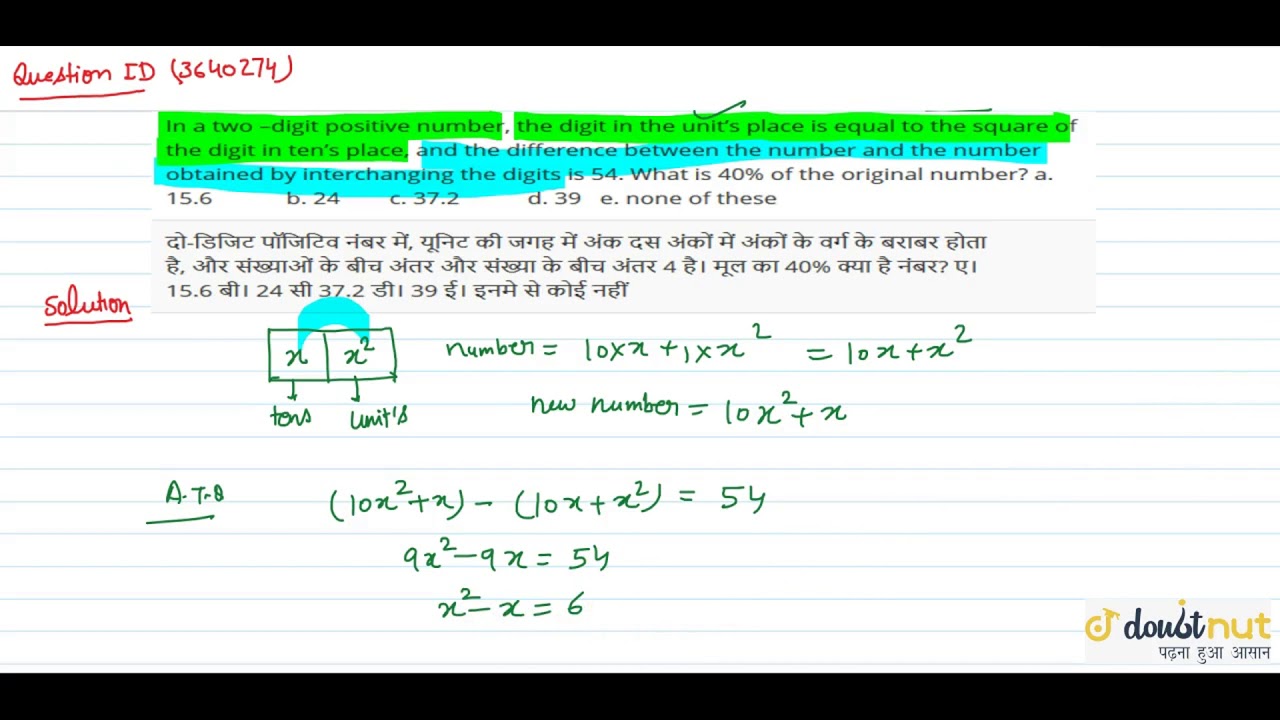 Question ID (3640274)
In a two –digit positive number, the digit in the unit's place is equal to the square of
the digit in ten's place, and the difference between the number and the number
obtained by interchanging the digits is 54. What is 40% of the original number? a.
15.6 b. 24 c. 37.2 d. 39 e. none of these
दो-डिजिट पॉजिटिव नंबर में, यूनिट की जगह में अंक दस अंकों में अंकों के वर्ग के बराबर होता
है, और संख्याओं के बीच अंतर और संख्या के बीच अंतर 4 है। मूल का 40% क्या है नंबर? ए।
15.6 बी। 24 सी 37.2 डी। 39 ई। इनमे से कोई नहीं
Solution
x x² number = 10×x + 1×x² = 10x + x²
tens unit's new number = 10x² + x
A.T.Q (10x² + x) - (10x + x²) = 54
9x² - 9x = 54
x² - x = 6
doubtnut
पढ़ना हुआ आसान